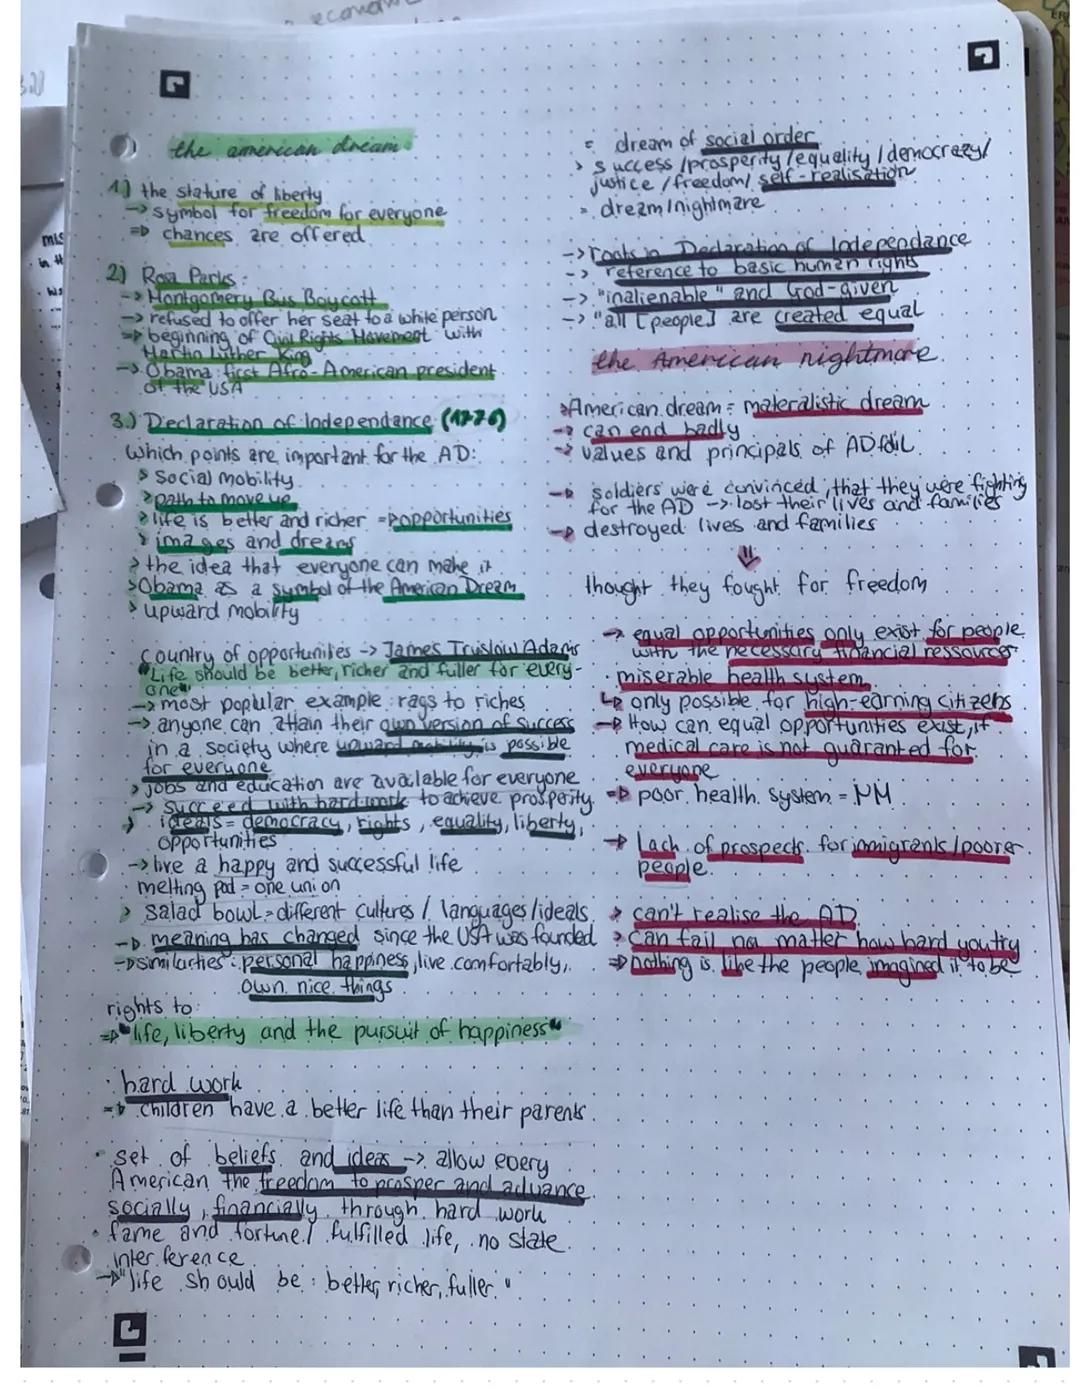 the american dream
1.) the stature of liberty
-> symbol for freedom for everyone
=> chances are offered
2.) Rosa Parks:
-> Montgomery Bus Boycott
-> refused to offer her seat to a white person
=> beginning of Civil Rights Movement with
Martin Luther King
-> Obama: first Afro-American president
of the USA
3.) Declaration of Independance (1776)
Which points are important for the AD:
> social mobility
> path to move up
> life is better and richer = opportunities
> images and dreams
> the idea that everyone can make it
> Obama as a symbol of the American Dream
> upward mobility
country of opportunities -> James Truslow Adams
"Life should be better, richer and fuller for every-
one"
-> most popular example: rags to riches
-> anyone can attain their own version of success
in a society where upward mobility is possible
for everyone
> jobs and education are available for everyone
-> succeed with hard work to achieve prosperity
> ideals = democracy, rights, equality, liberty,
opportunities
-> live a happy and successful life
· melting pod = one union
> salad bowl = different cultures / languages/ideals
-> meaning has changed since the USA was founded
-> similarties: personal happiness, live comfortably,
own nice things
rights to:
=> "life, liberty and the pursuit of happiness"
· hard work
=> children have a better life than their parents
· set of beliefs and ideas -> allow every
American the freedom to prosper and advance
socially, financially through hard work
· fame and fortune / fulfilled life, no state
interference
-> "life should be: better, richer, fuller"
= dream of social order
> success /prosperity /equality / democrazy/
justice /freedom/ self-realisation
= dream/nightmare
-> roots in Declaration of Independance
-> reference to basic human rights
-> "inalienable" and God-given
-> "all [people] are created equal
the American nightmare
> American dream = materalistic dream
-> can end badly
-> values and principals of AD fail
-> soldiers were convinced, that they were fighting
for the AD -> lost their lives and families
-> destroyed lives and families
⇓
thought they fought for freedom
-> equal opportunities only exist for people
with the necessary financial ressources
· miserable health system
↳ only possible for high-earning citizens
-> How can equal opportunities exist, if
medical care is not guaranted for
everyone
=> poor health system = NM
-> Lack of prospects for immigrants/poorer
people
> can't realise the AD
> can fail no matter how hard you try
=> nothing is like the people imagined it to be